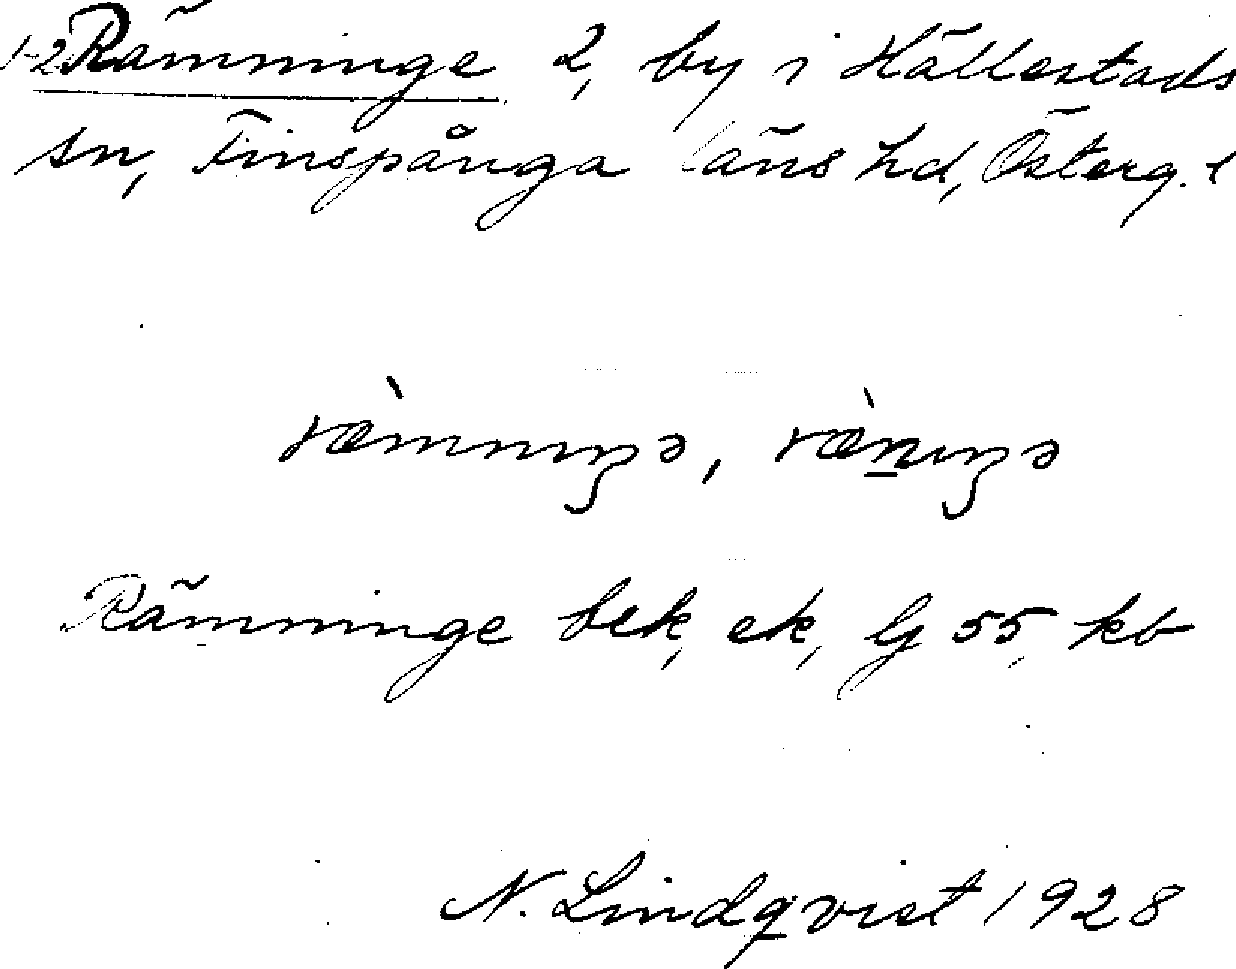 1-2 Rämninge 2, by i Hällestads
sn, Finspånga läns hd, Österg. l
Rämninge bek, ek, Gj 55, kb
N. Lindqvist 1928